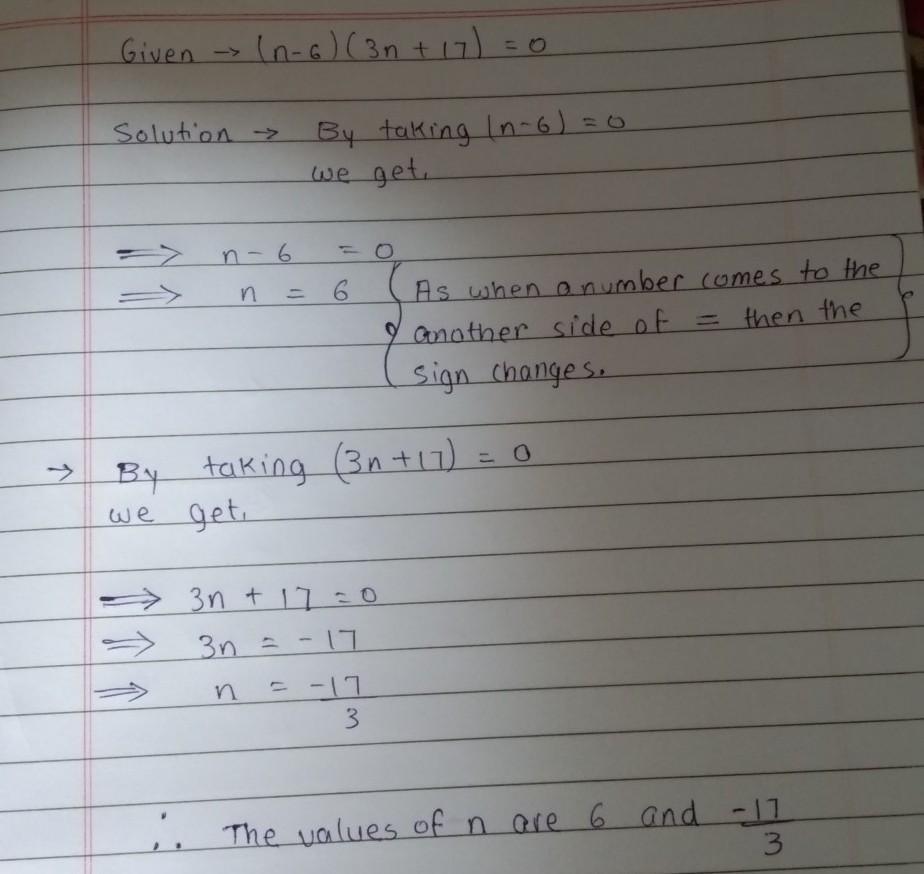 Given → (n-6)(3n + 17) = 0
Solution → By taking (n-6) = 0
we get,
⟹ n - 6 = 0
⟹ n = 6 { As when a number comes to the
another side of = then the
sign changes. }
→ By taking (3n+17) = 0
we get,
⟹ 3n + 17 = 0
⟹ 3n = -17
⟹ n = -17
3
∴ The values of n are 6 and -17
3